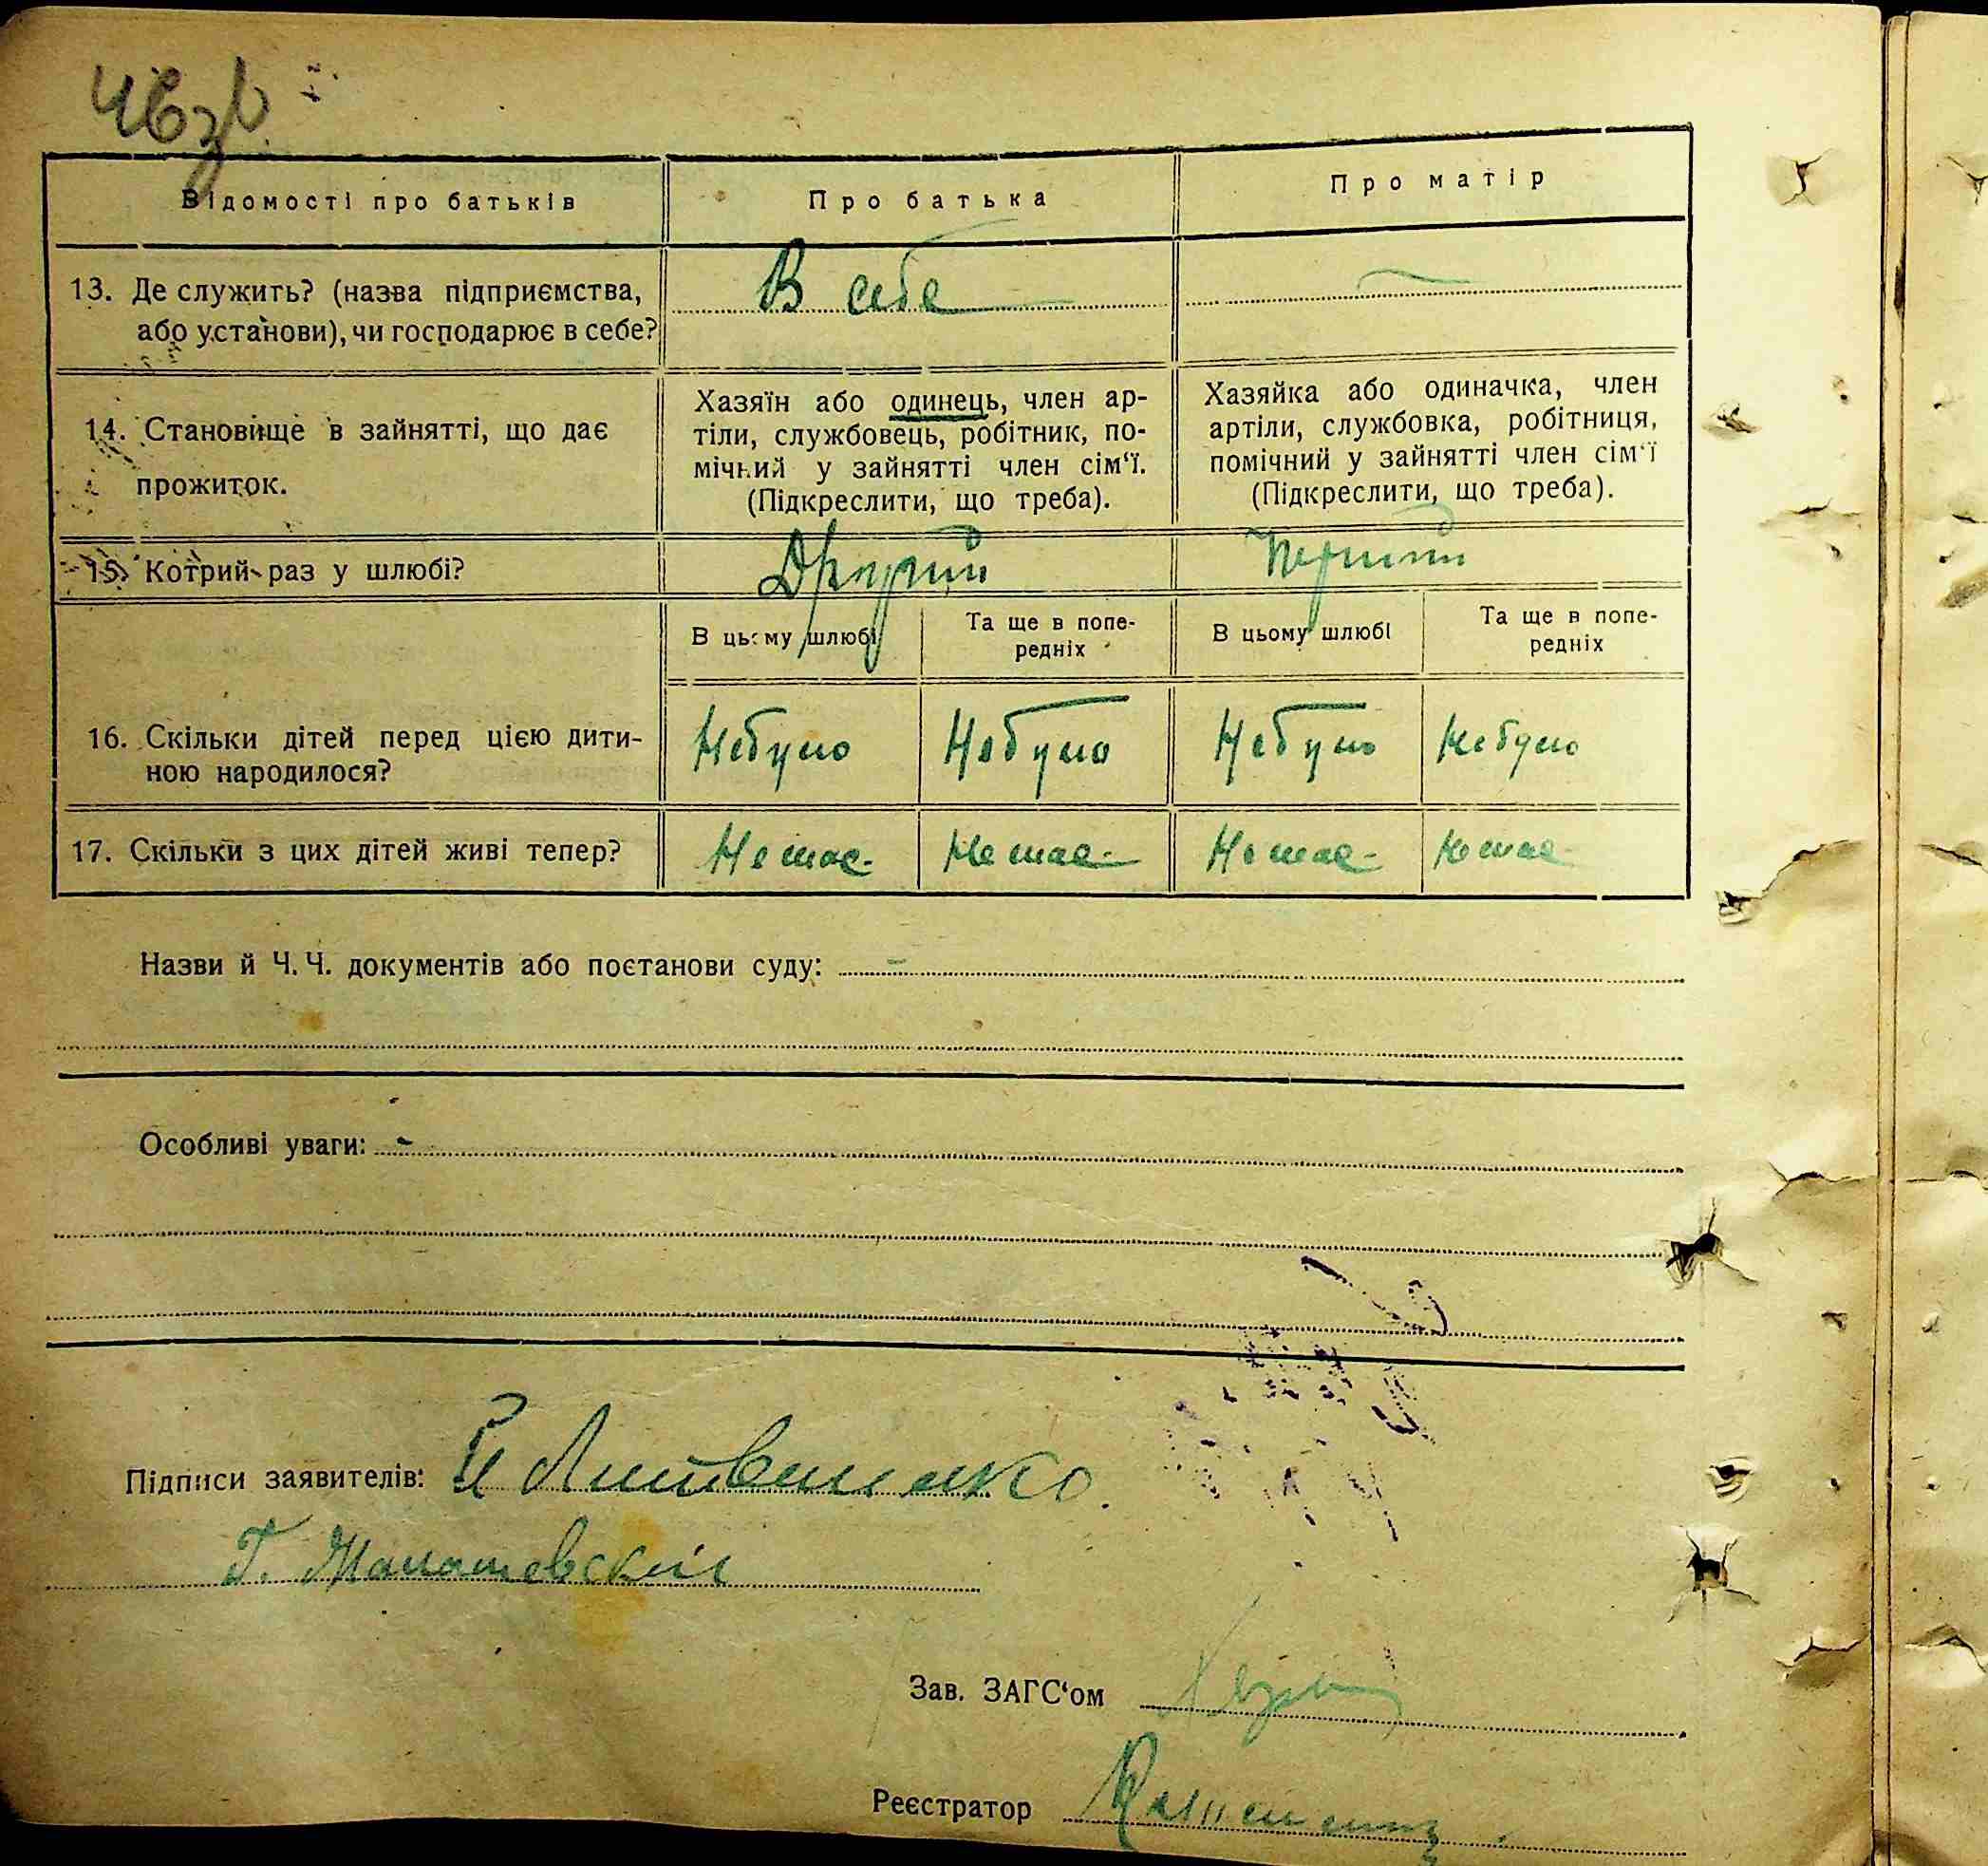 46зв
Відомості про батьків
Про батька
Про матір
13. Де служить? (назва підприємства,
або установи), чи господарює в себе?
В себе
14. Становище в зайнятті, що дає
прожиток.
Хазяїн або одинець, член ар-
тіли, службовець, робітник, по-
мічний у зайнятті член сім‘ї.
(Підкреслити, що треба).
Хазяйка або одиначка, член
артіли, службовка, робітниця,
помічний у зайнятті член сім‘ї
(Підкреслити, що треба).
15. Котрий раз у шлюбі?
Другий
Перший
В цьому шлюбі
Та ще в попе-
редніх
В цьому шлюбі
Та ще в попе-
редніх
16. Скільки дітей перед цією дити-
ною народилося?
Небуло
Небуло
Небуло
Небуло
17. Скільки з цих дітей живі тепер?
Немає-
Немає-
Немає-
Немає-
Назви й Ч. Ч. документів або постанови суду: -
Особливі уваги: -
Підписи заявителів: Литвиненко.
Г. Малашевский
Зав. ЗАГС‘ом
Реєстратор